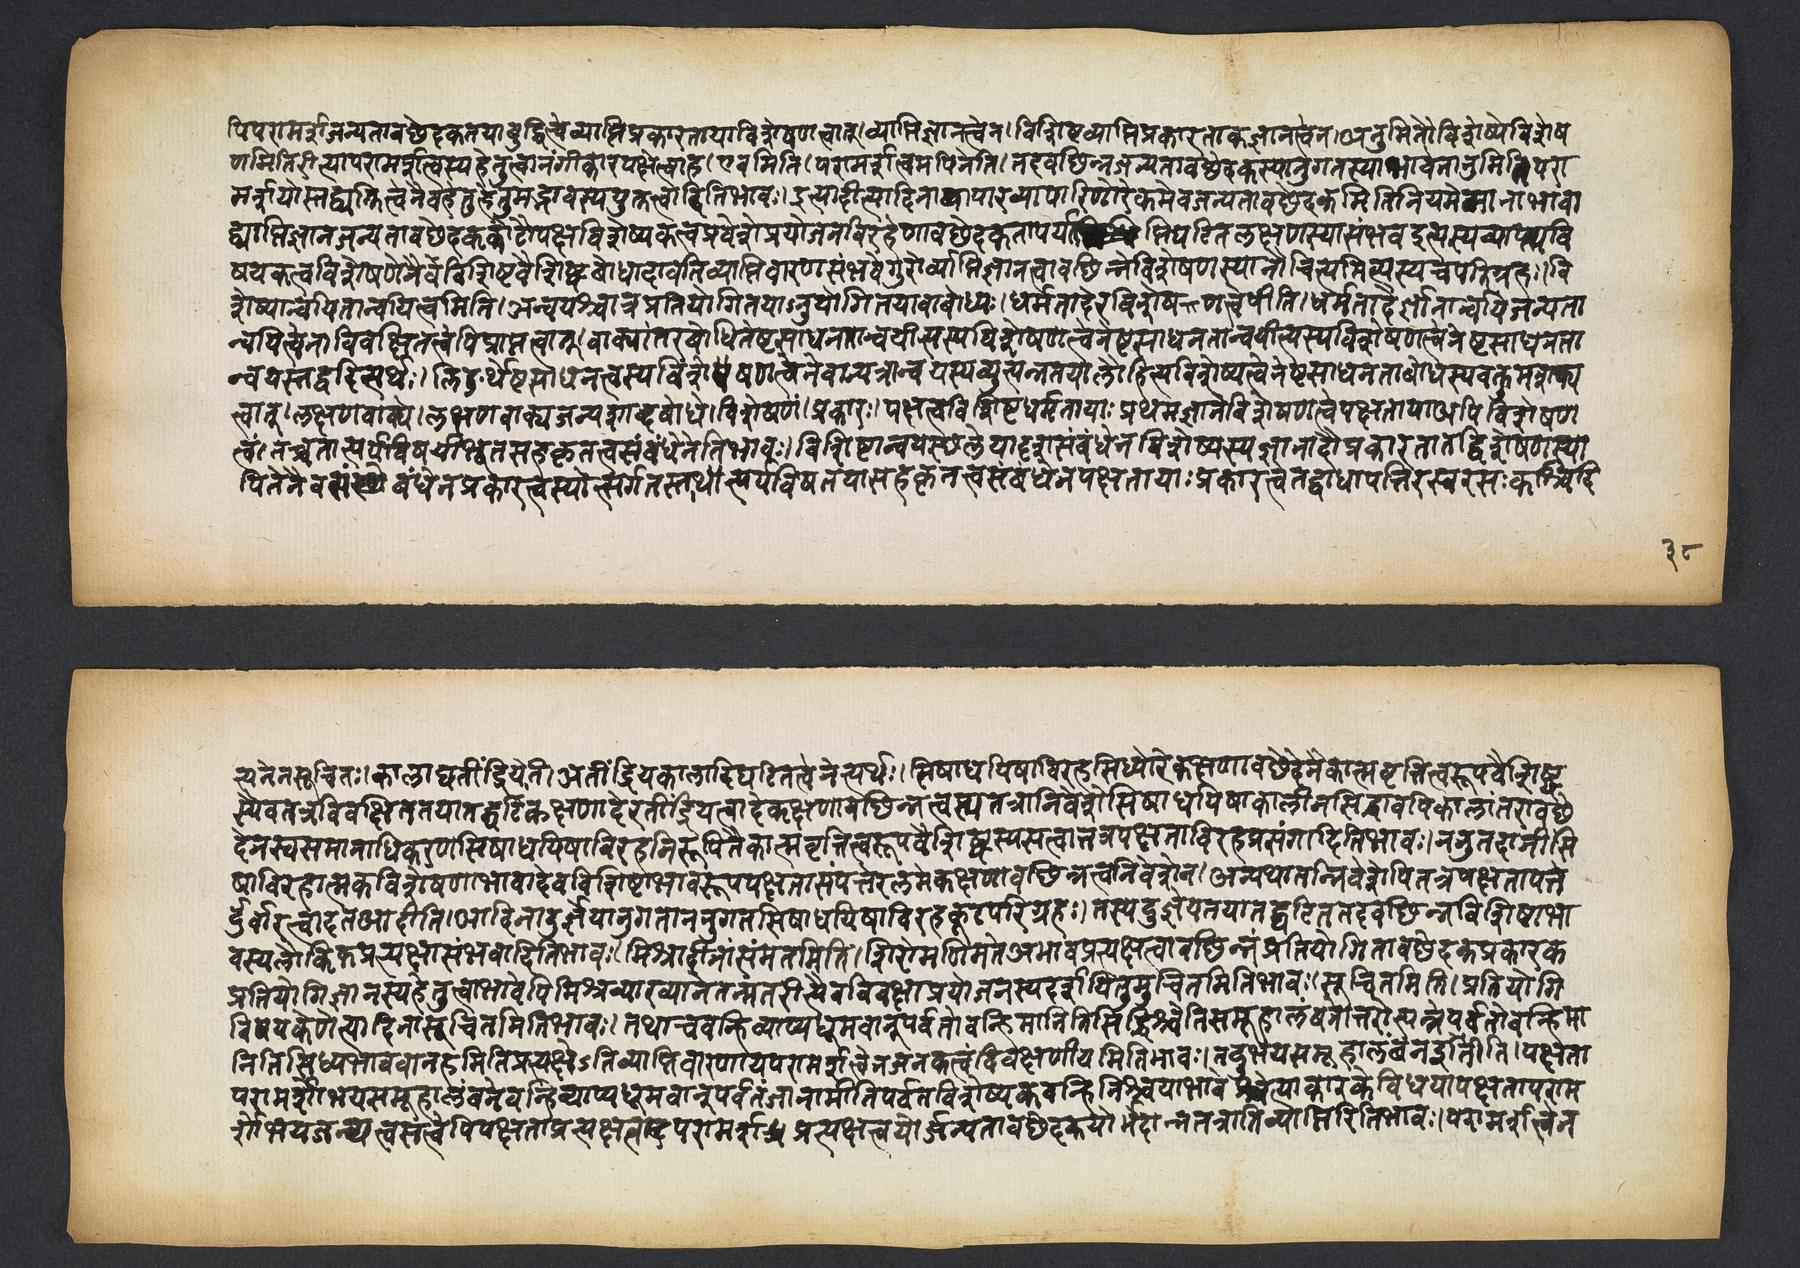 पिपरामर्शजन्यतावछेदकतयाबुद्धित्वव्याप्तिप्रकारतायाविशेषणत्वात्।व्याप्तिज्ञानत्वेन।विशिष्टव्याप्तिप्रकारताकज्ञानत्वेन।अनुमितौविशेष्येविशेष
णमितिरीत्यापरामर्शत्वस्यहेतुत्वानंगीकारपक्षत्वाह।एवमिति।परामर्शत्वमपिनेति।तदवछिन्नजन्यतावछेदकस्यानुगतस्याभावेनानुमितिपरा
मर्शयोस्तद्व्यक्तित्वेनैवहेतुहेतुमद्भावस्ययुक्तत्वादितिभावः।इत्यादीत्यादिनाव्यापारव्यापारिणोरेकमेवजन्यतावछेदकमितिनियमेमानाभावा
द्व्याप्तिज्ञानजन्यतावछेदककोटौपक्षविशेष्यकत्वप्रवेशेप्रयोजनविरहेणावछेदकतापर्या प्तिघटितलक्षणस्यासंभवइत्यस्यव्याप्यवि
षयकत्वविशेषणेनैवविशिष्टवैशिष्ट्यबोधादावतिव्याप्तिवारणसंभवेगुरोर्व्याप्तिज्ञानत्वावछिन्नविशेषणस्यानौचित्यमित्यस्यचपरिग्रहः।वि
शेष्यान्वयितान्वयित्वमिति।अन्वयश्चात्रप्रतियोगितयाऽनुयोगितयावाबोध्यः।धर्मतादेरविशेषणत्वेपीति।धर्मतादेर्ज्ञानान्वयिजन्यता
न्वयित्वेनाविवक्षितत्वेपिप्राप्तत्वात्।वाक्यांतरबोधितेष्टसाधनतान्वयीत्यस्यविशेषणत्वेनेष्टसाधनतान्वयीत्यस्यविशेषणत्वेनेष्टसाधनता
न्वयस्तद्वदित्यर्थः।लिङर्थेष्टसाधनत्वस्यविशेषणत्वेनैवान्यत्रान्वयस्यव्युत्पन्नतयालोहित्यविशेष्यत्वेनेष्टसाधनताबोधस्यवक्तुमशक्य
त्वात्।लक्षणवाक्ये।लक्षणवाक्यजन्यशाब्दबोधे।विशेषणं।प्रकारः।पक्षत्वविशिष्टधर्मतायाः प्रथमज्ञानेविशेषणत्वेपक्षतायाअपि विशेषण
त्वं।तच्चतात्पर्यविषयीभूतसहकृतत्वसंबंधेनेतिभावः।विशिष्टान्वयस्थलेयादृशसंबंधेनविशेष्यस्यज्ञानादौप्रकारतातद्विशेषणस्या
पितेनैवसंबंधेनप्रकारत्वस्योत्सर्गतस्तथातात्पर्यविषतयासहकृतत्वसंबंधेनपक्षतायाः प्रकारत्वेतद्बाधापत्तिरस्वरसःकश्चिदि
त्यनेनसूचितः।कालाद्यतींद्रियेति।अतींद्रियकालादिघटितत्वेनेत्यर्थः।सिषाधयिषाविरहसिध्योरेकक्षणावछेदेनैकात्मवृत्तित्वरूपवैशिष्ट्य
स्यैवतत्रविवक्षिततयातद्घटकक्षणादेरतींद्रियत्वादेकक्षणावछिन्नत्वस्यतत्रानिवेशेसिषाधयिषाकालीनसिद्धावपिकालांतरावछे
देनस्वसमानाधिकरणसिषाधयिषाविरहनिरूपितैकात्मवृत्तित्वरूपवैशिष्ट्यस्यसत्वात्तत्रपक्षताविरहप्रसंगादितिभावः।ननुतदानींसि
षाविरहात्मकविशेषणाभावादेवविशिष्टाभावरूपपक्षतासंपत्तेरलमेकक्षणावछिन्नत्वनिवेशेन।अन्यथातन्निवेशेपितत्रपक्षतापत्ते
र्दुर्वारत्वादतआदीति।आदिनादुर्ज्ञेयानुगताननुगतसिषाधयिषाविरहकूटपरिग्रहः।तस्यदुर्ज्ञेयतयातद्घटिततदवछिन्नविशिष्टाभा
वस्यलौकिकप्रत्यक्षासंभवादितिभावः।मिश्रादीनांसंमतमिति।शिरोमणिमतेअभावप्रत्यक्षत्वावछिन्नंप्रतियोगितावछेदकप्रकारक
प्रतियोगिज्ञानस्यहेतुत्वाभावेपिमिश्रव्याख्यानेतन्मतरीत्यैवविवक्षाप्रयोजनस्यदर्शयितुमुचितमितिभावः।सूचितमिति।प्रतियोगि
विषयकेणेत्यादिनासूचितमितिभावः।तथाचवन्हिव्याप्यधूमवान्पर्वतोवन्हिमानितिसिद्धिश्चेतिसमूहालंबनोत्तरोत्पन्नेपर्वतोवन्हिमा
नितिसिध्यभाववानहमितिप्रत्यक्षेऽतिव्याप्तिवारणायपरामर्शत्वेनजनकत्वंविवक्षणीयमितिभावः।तदुभयसमूहालंबनइतीति।पक्षता
परामर्शोभयसमूहालंबनेवन्हिव्याप्यधूमवान्पर्वतंजानामीतिपर्वतविशेष्यकवन्हिनिश्चयाभावश्चेत्याकारकेविधयापक्षतापराम
र्शोभयजन्यत्वसत्वेपिपक्षताप्रत्यक्षत्वपरामर्शप्रत्यक्षत्वयोर्जन्यतावछेदकयोर्भेदान्नतत्रातिव्याप्तिरितिभावः।परामर्शत्वेन
३८